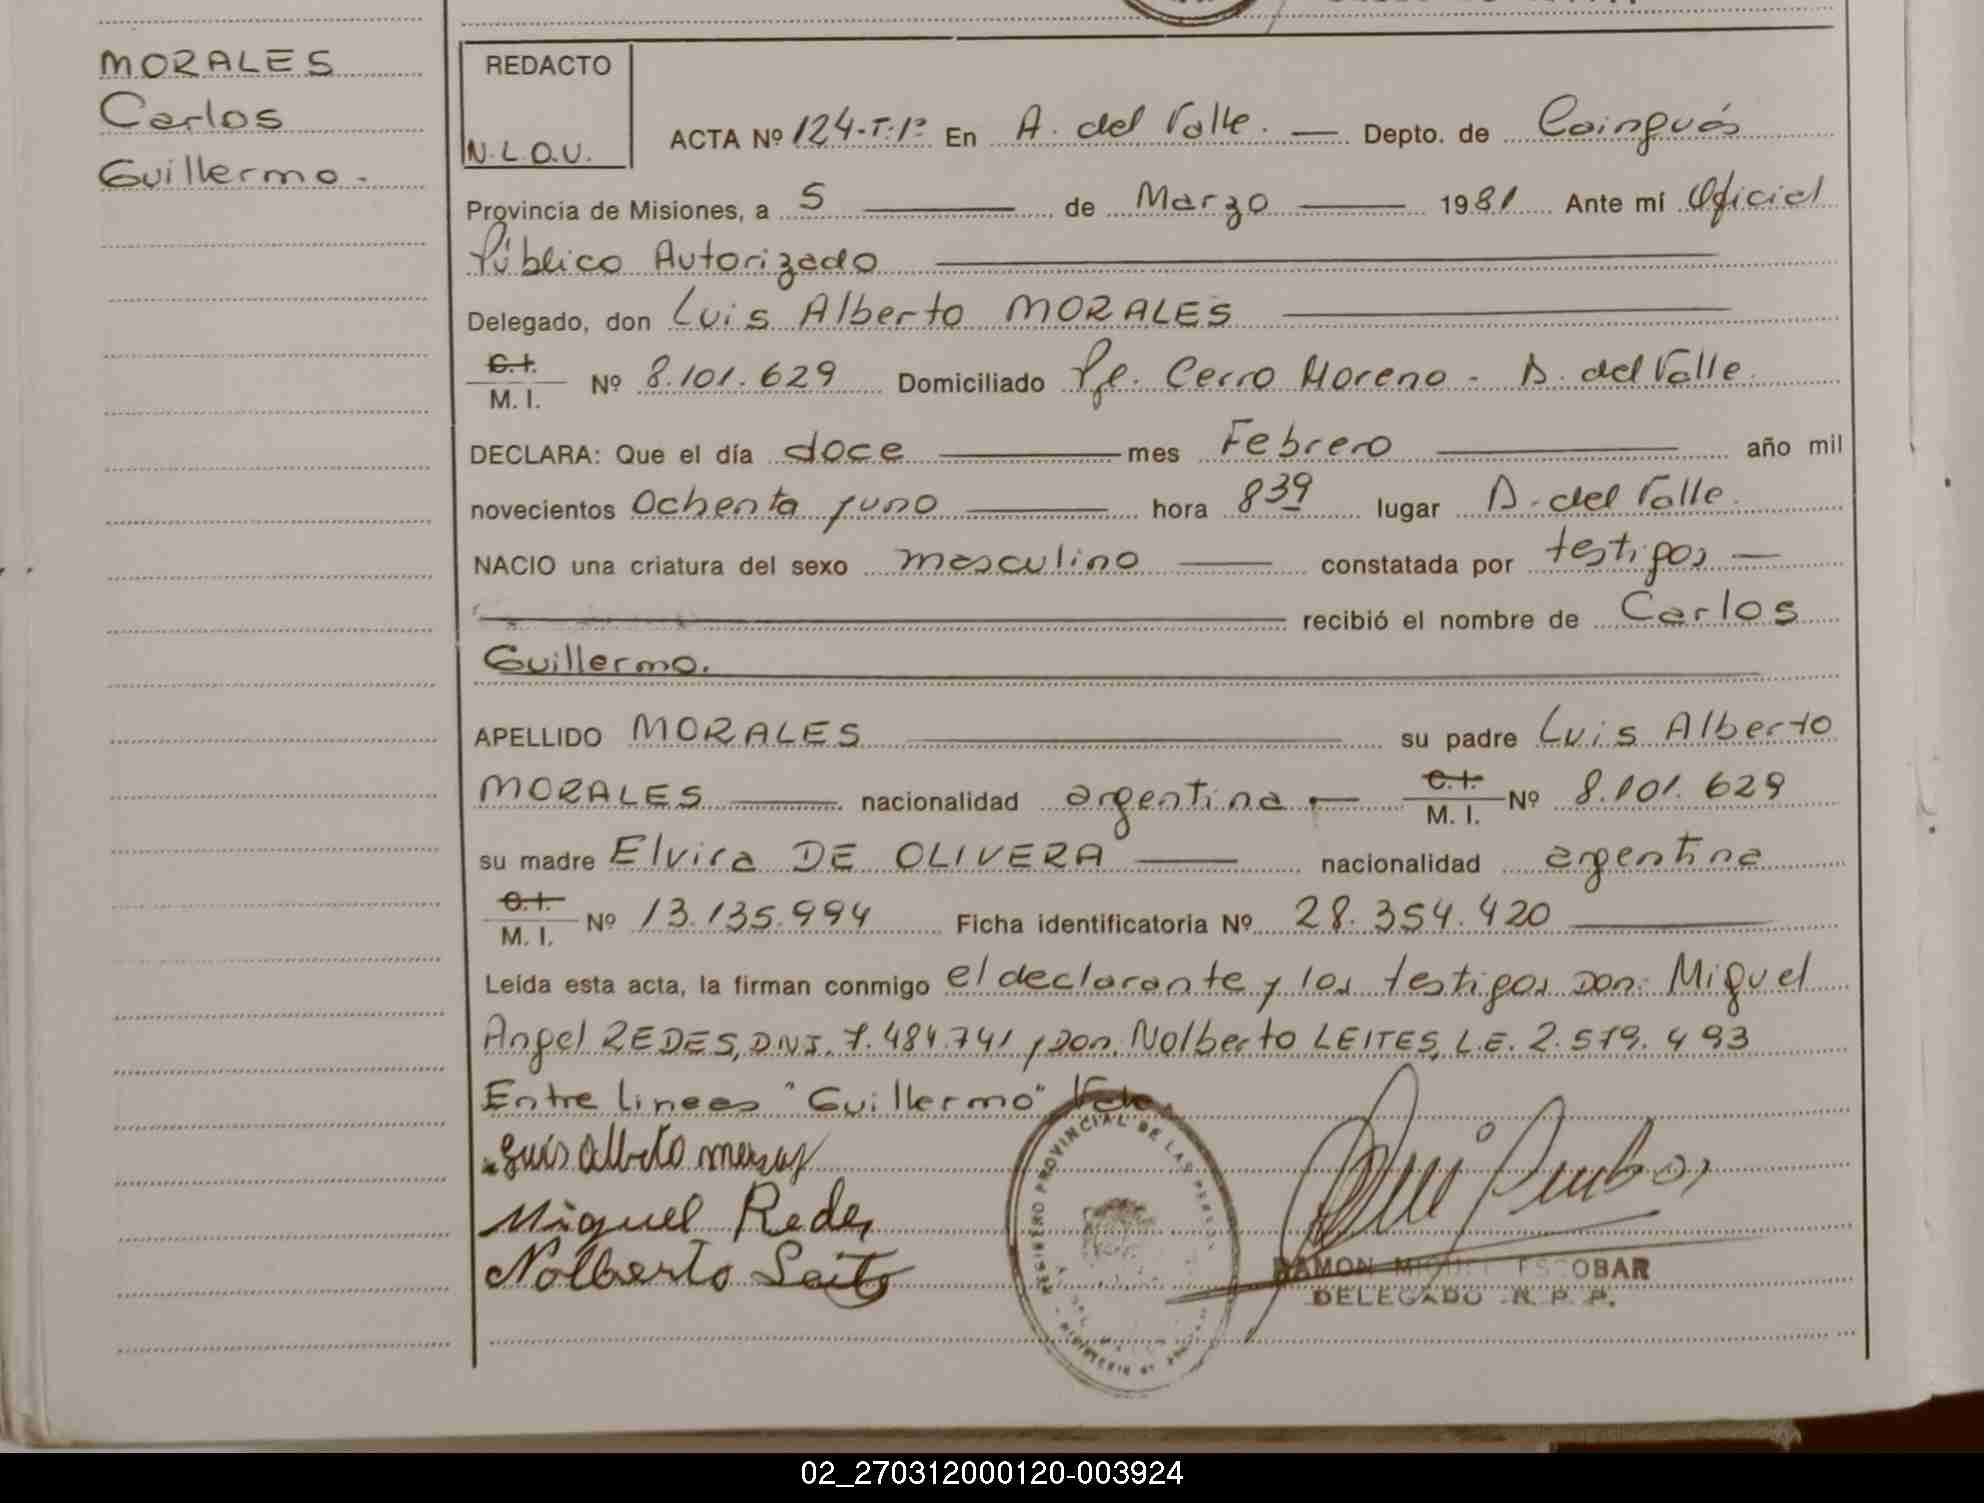 MORALES
Carlos
Guillermo.-
REDACTO
N.L.O.U.
ACTA Nº 124-T:1º En A. del Valle. — Depto. de Cainguás
Provincia de Misiones, a 5 — de Marzo — 1981 Ante mí Oficial
Público Autorizado
Delegado, don Luis Alberto MORALES
C.I. M. I. Nº 8.101.629 Domiciliado Pje. Cerro Moreno - A. del Valle.
DECLARA: Que el día doce — mes Febrero — año mil
novecientos Ochenta y uno — hora 8 39 lugar A. del Valle.
NACIO una criatura del sexo masculino — constatada por testigos —
recibió el nombre de Carlos
Guillermo.
APELLIDO MORALES — su padre Luis Alberto
MORALES — nacionalidad argentina — C.I. M. I. Nº 8.101.629
su madre Elvira DE OLIVERA — nacionalidad argentina
C.I. M. I. Nº 13.135.994 Ficha identificatoria Nº 28.354.420
Leída esta acta, la firman conmigo el declarante y los testigos Don: Miguel
Angel REDES, DNI. 7.484.741 y Don. Nolberto LEITES, L.E. 2.579.493
Entre lineas "Guillermo" Vale.
Luis Alberto
Miguel Redes
Nolberto Leites
REGISTRO PROVINCIAL DE LAS PERSONAS
RAMON MIGUEL ESCOBAR
DELEGADO R. P. P.
02_270312000120-003924